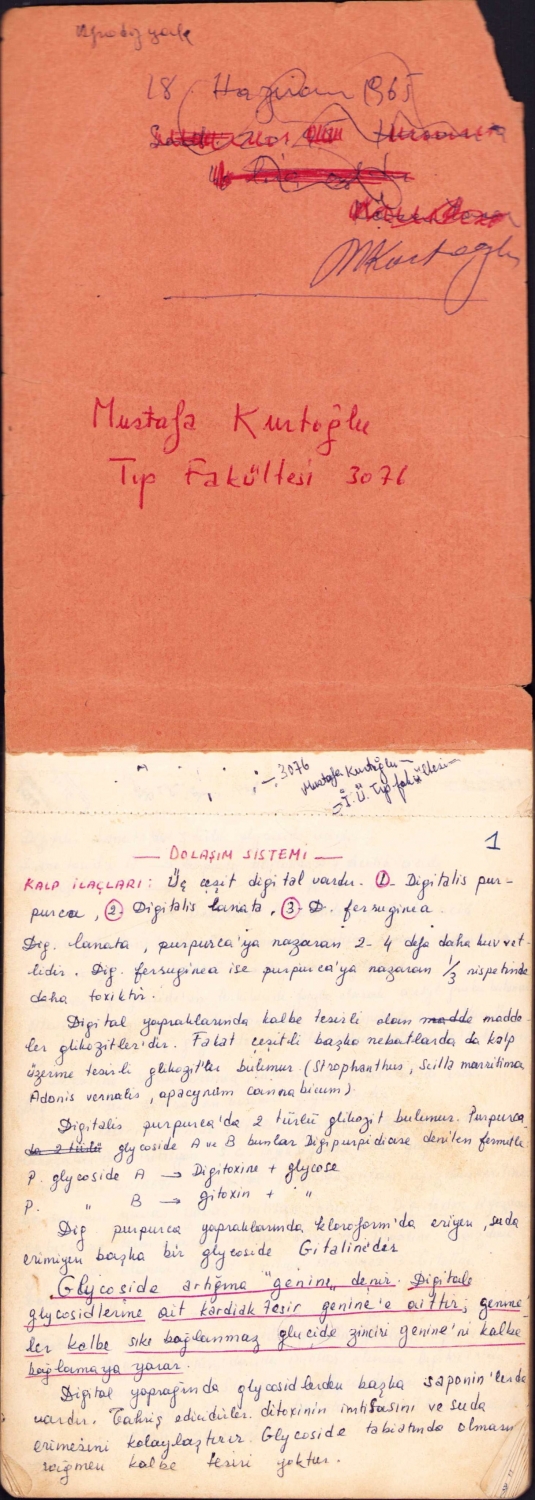 18 Haziran 1965
MKurtoğlu
Mustafa Kurtoğlu
Tıp Fakültesi 3076
3076
Mustafa Kurtoğlu
İ.Ü. Tıp fakültesi
1
— DOLAŞIM SİSTEMİ —
KALP İLAÇLARI: Üç çeşit digital vardır. 1- Digitalis pur-
purea, 2- Digitalis lanata, 3- D. ferruginea.
Dig. lanata, purpurea'ya nazaran 2-4 defa daha kuvvet-
lidir. Dig. ferruginea ise purpurea'ya nazaran 1/3 nispetinde
daha toxiktir.
Digital yapraklarında kalbe tesirli olan madde madde-
ler glikozitler'dir. Fakat çeşitli başka nebatlarda da kalp
üzerine tesirli glikozit'ler bulunur. (Strophanthus, Scilla marritima,
Adonis vernalis, apacynum cannabicum)
Digitalis purpurea'da 2 türlü glikozit bulunur. Purpurea
da 2 türlü glycoside A ve B bunlar Digipurpidiase denilen fermitle
P. glycoside A → Digitoxine + glycose
P. " B → gitoxin + "
Dig purpurea yapraklarında kloroform'da eriyen, suda
erimiyen başka bir glycoside Gitaline'dir
Glycoside artığına "genine" denir. Digitale
glycosidlerine ait kardiak tesir genine'e aittir, genine'
ler kalbe sıkı bağlanmaz glucide zinciri genine'ni kalbe
bağlamaya yarar.
Digital yaprağında glycosidlerden başka saponin'lerde
vardır. Tahriş edicidirler. ditoxinin imtisasını ve suda
erimesini kolaylaştırır. Glycoside tabiatında olmasın
rağmen kalbe tesiri yoktur.